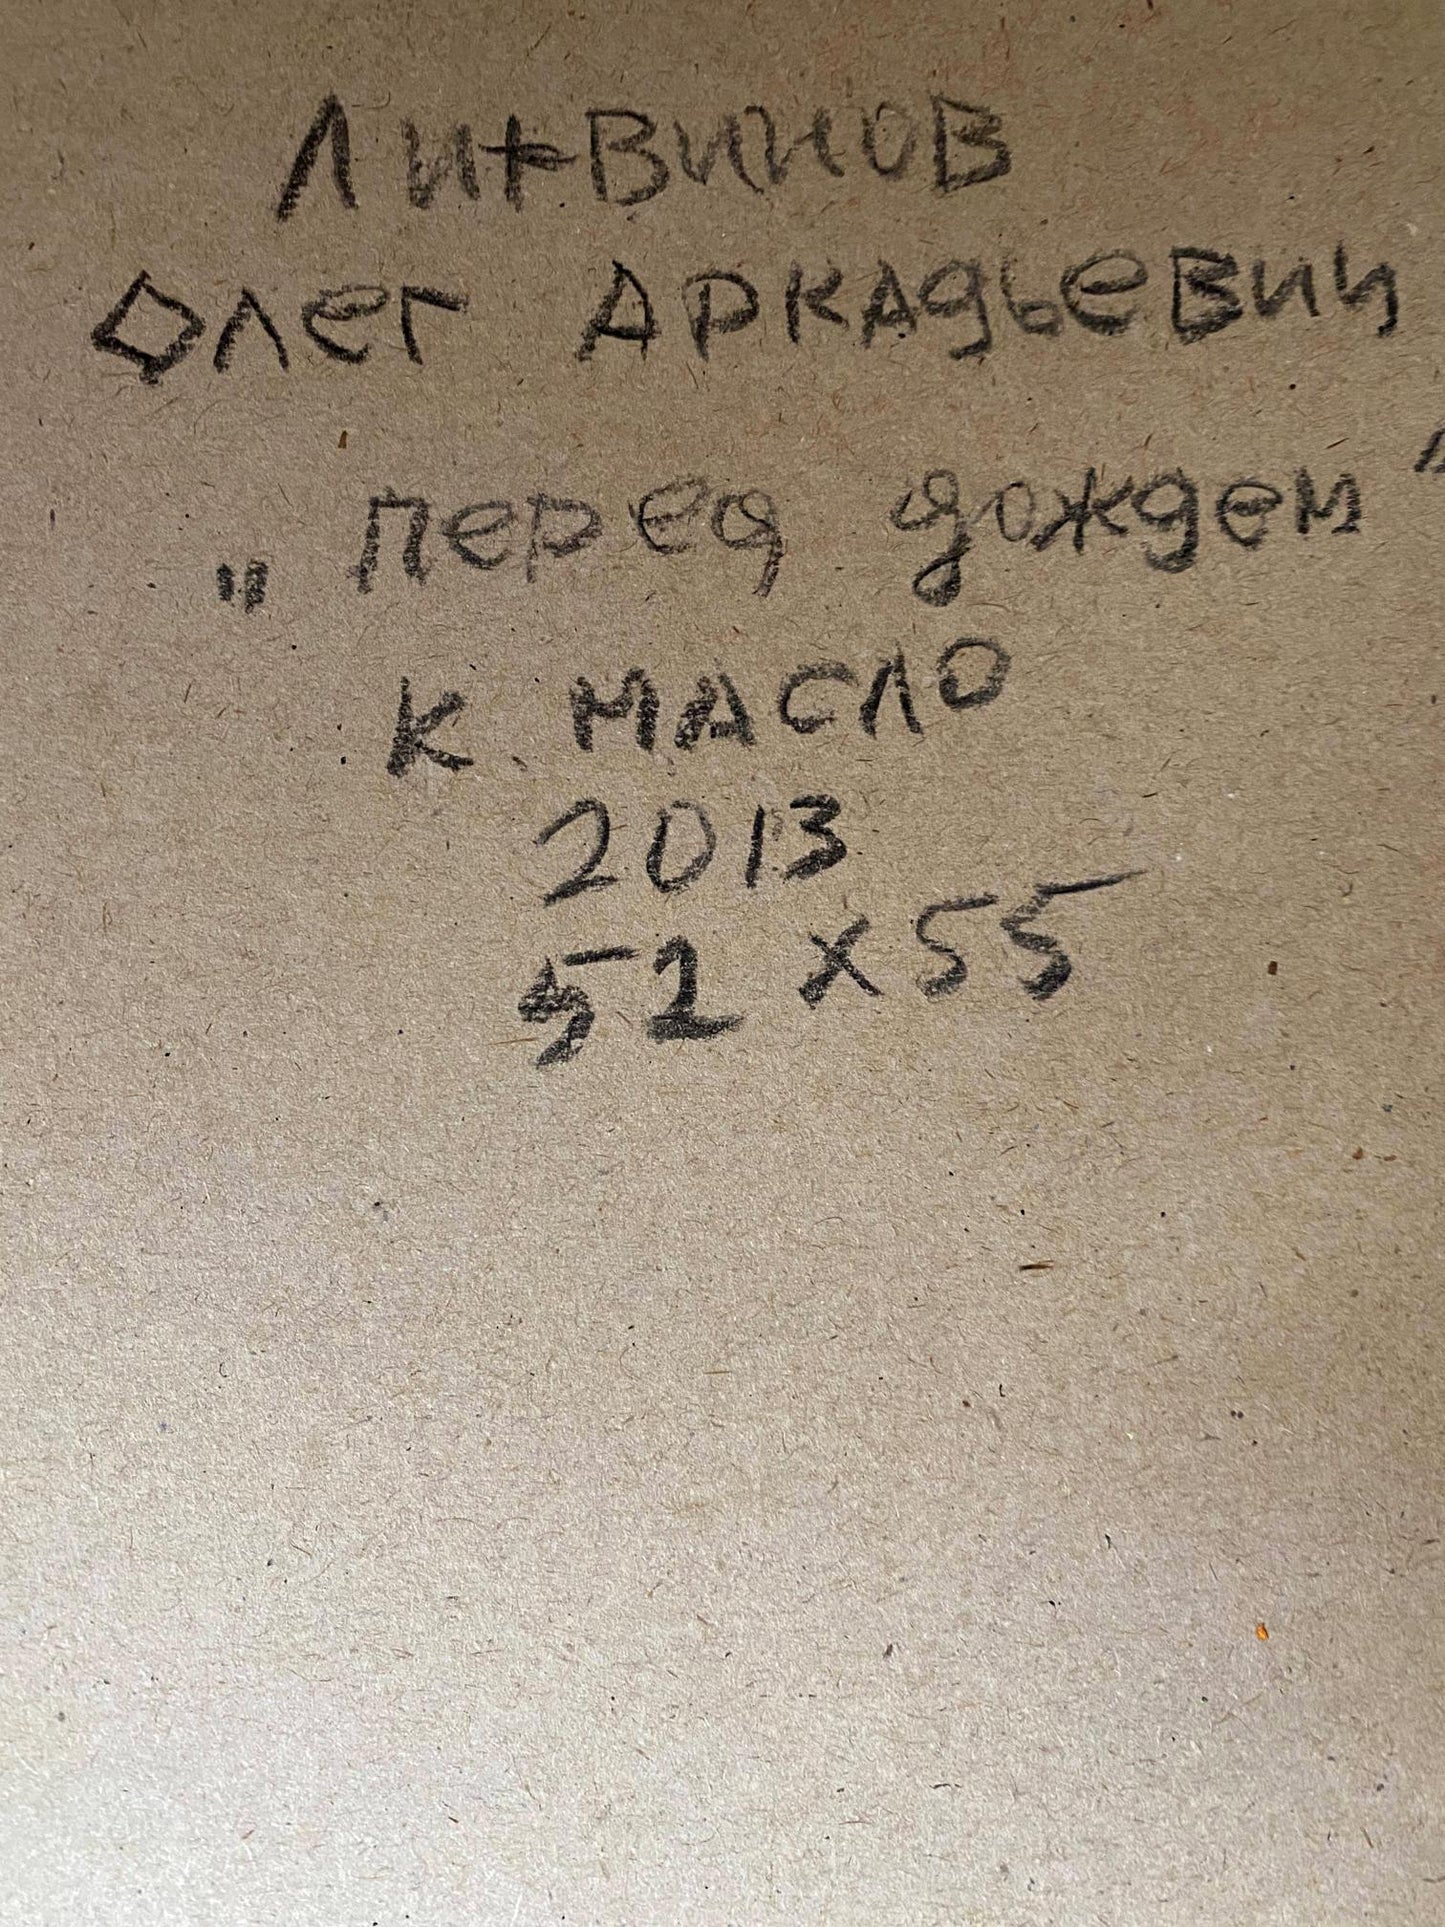 Литвинов
Олег Аркадьевич
„перед дождем"
к. масло
2013
52 x 55